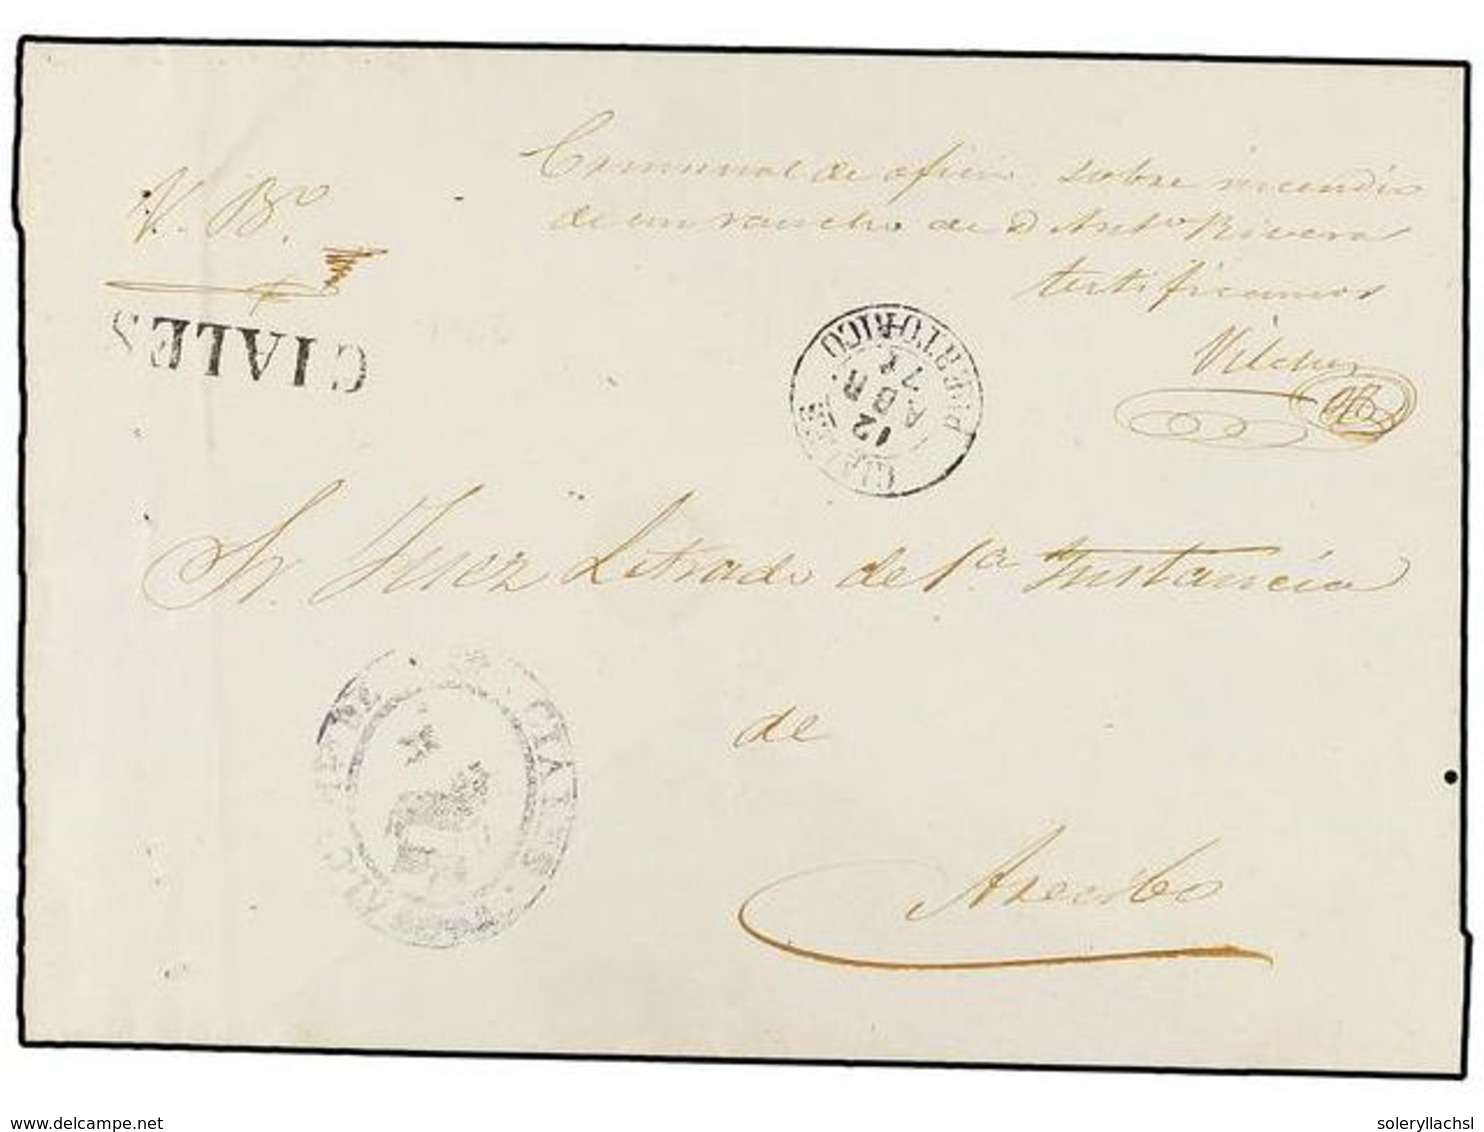 Criminal de oficio sobre incendio
de un rancho de D Anto Rivera
V. Bo.
tertificamos
Vilches
CIALES
PUERTO-RICO
12
ABR
71
CIALES
Sr. Juez Letrado de 1a Instancia
CIALES
de
Arecibo
www.delcampe.net
soleryllachsl